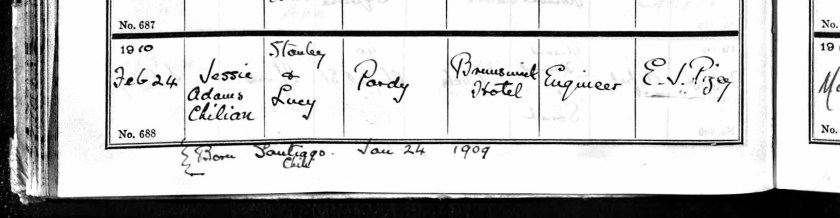 No. 687
No.
1910
Feb 24
Jessie
Adams
Chilian
Stanley
&
Lucy
Pardy
Brunswick
Hotel
Engineer
E. J. Pizey
No. 688
Born Santiago. Jan 24 1909
Chili
No.